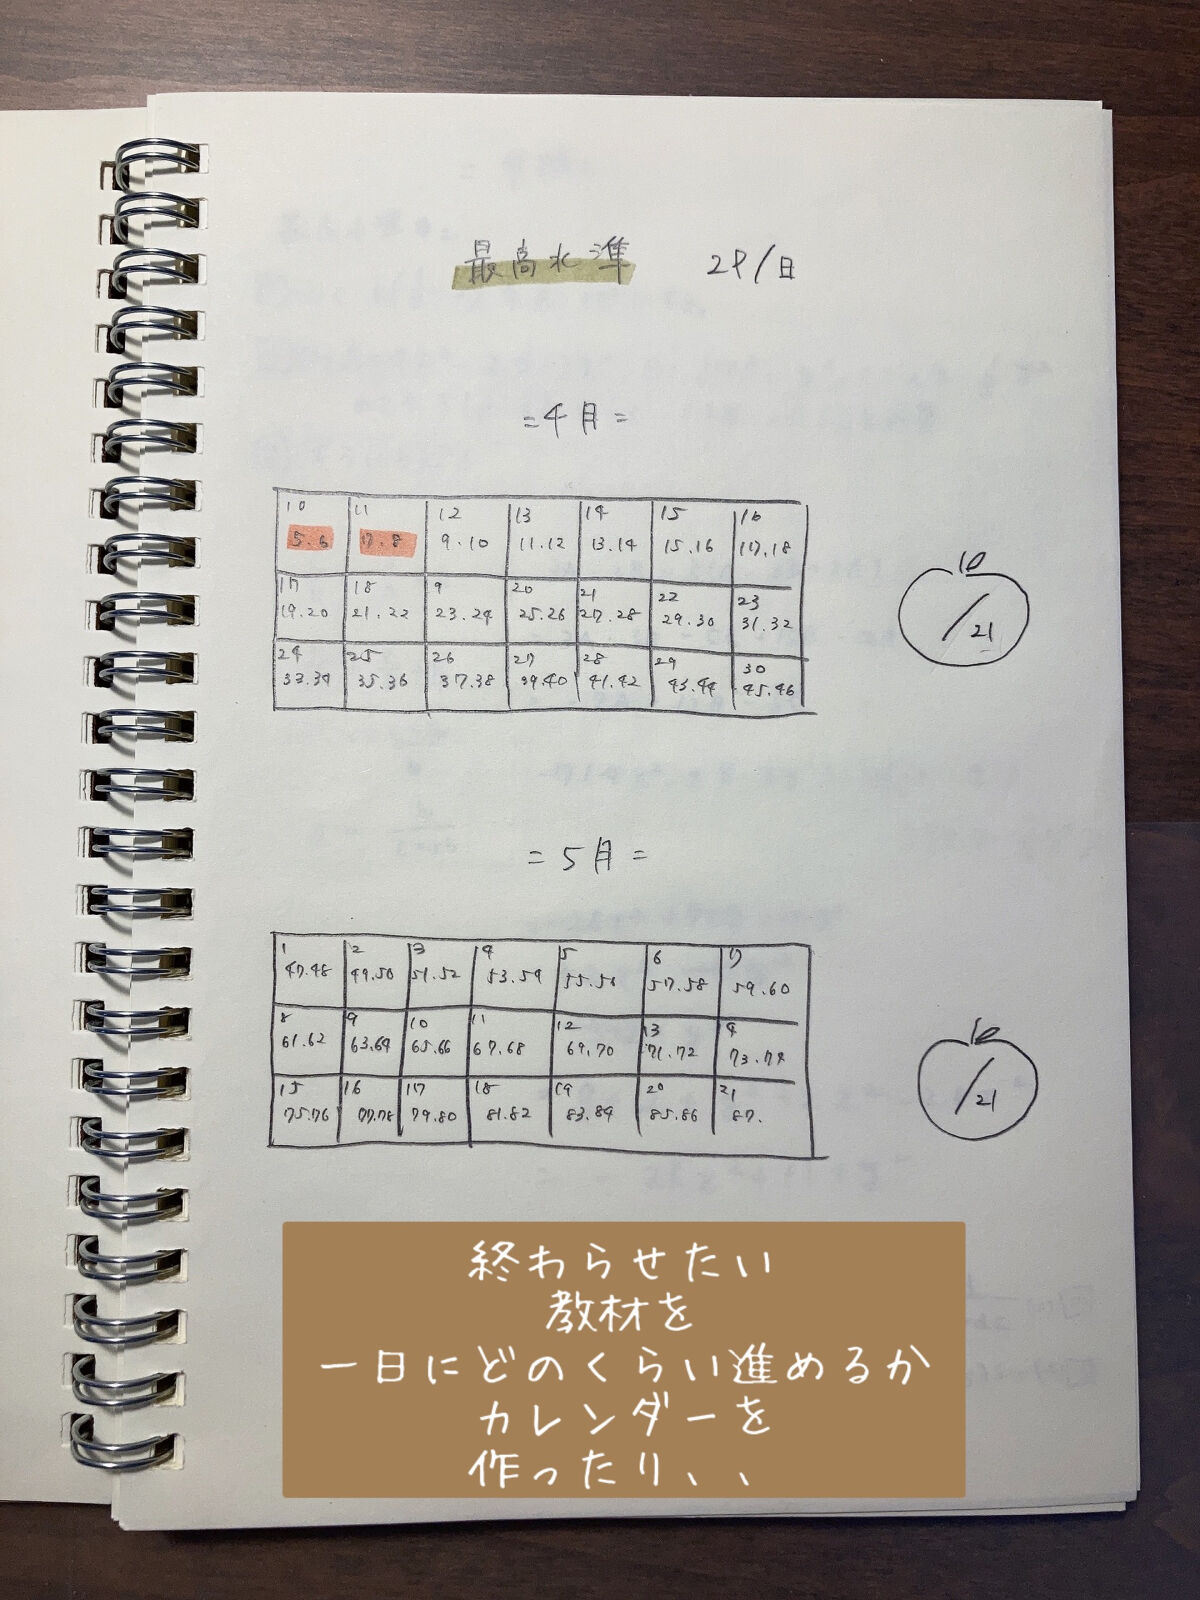 最高水準 2P/日
=4月=
10 11 12 13 14 15 16
5.6 7.8 9.10 11.12 13.14 15.16 17.18
17 18 9 20 21 22 23
19.20 21.22 23.24 25.26 27.28 29.30 31.32
24 25 26 27 28 29 30
33.34 35.36 37.38 39.40 41.42 43.44 45.46
/21
=5月=
1 2 3 4 5 6 7
47.48 49.50 51.52 53.54 55.56 57.58 59.60
8 9 10 11 12 13 4
61.62 63.64 65.66 67.68 69.70 71.72 73.74
15 16 17 18 19 20 21
75.76 77.78 79.80 81.82 83.84 85.86 87.
/21
終わらせたい
教材を
一日にどのくらい進めるか
カレンダーを
作ったり、、